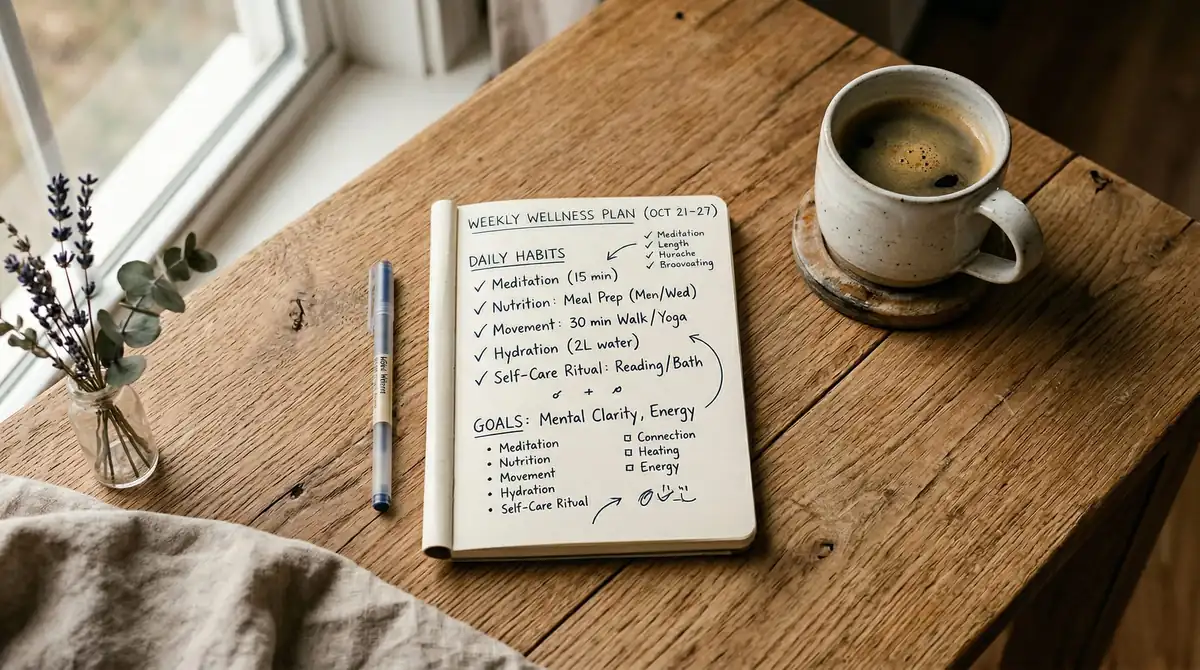 WEEKLY WELLNESS PLAN (OCT 21-27)
✓ Meditation
✓ Length
✓ Hurache
✓ Broovoating
DAILY HABITS
✓ Meditation (15 min)
✓ Nutrition: Meal Prep (Men/Wed)
✓ Movement: 30 min Walk/Yoga
✓ Hydration (2L water)
✓ Self-Care Ritual: Reading/Bath
GOALS: Mental Clarity, Energy
• Meditation
• Nutrition
• Movement
• Hydration
• Self-Care Ritual
□ Connection
□ Heating
□ Energy